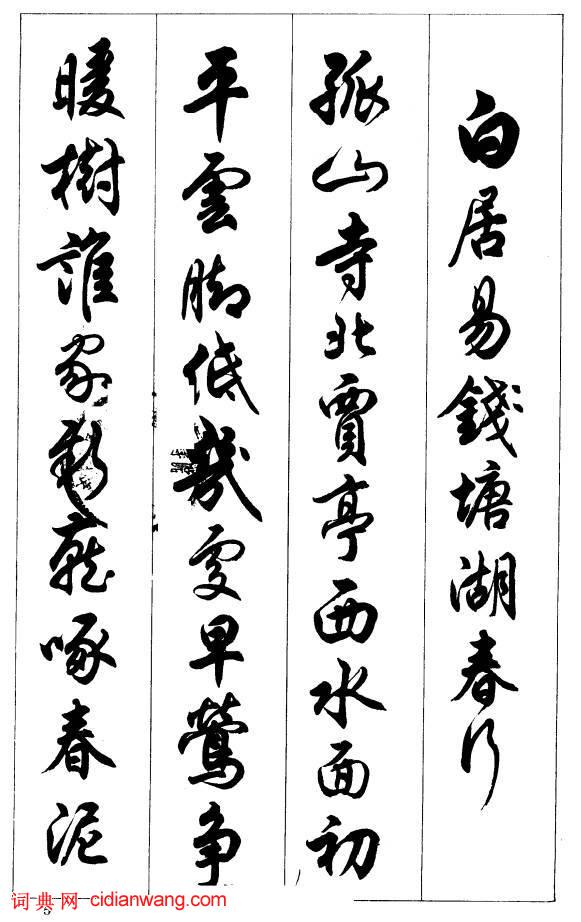 白居易錢塘湖春行
孤山寺北賈亭西水面初
平雲脚低幾處早鶯争
暖樹誰家新燕啄春泥
词典网-cidianwang.com
5